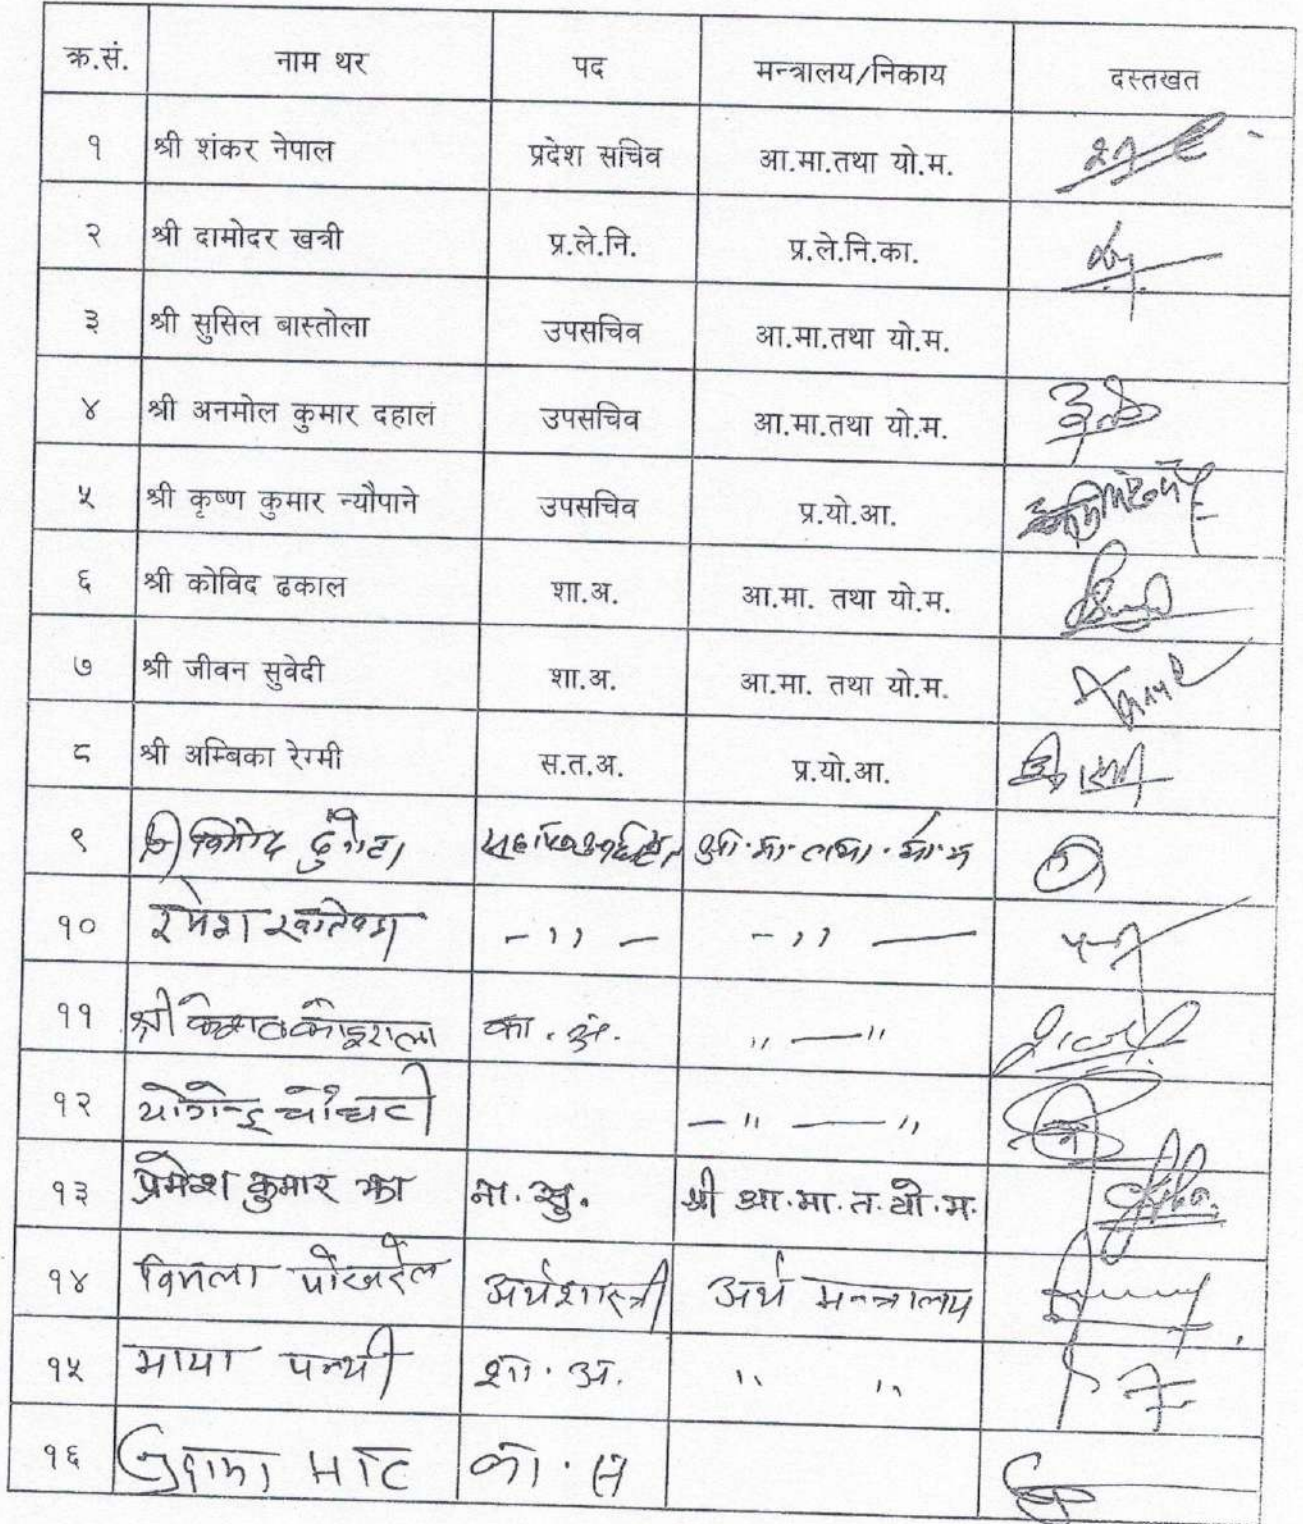 क्र.सं. नाम थर पद मन्त्रालय/निकाय दस्तखत
१ श्री शंकर नेपाल प्रदेश सचिव आ.मा.तथा यो.म.
२ श्री दामोदर खत्री प्र.ले.नि. प्र.ले.नि.का.
३ श्री सुसिल बास्तोला उपसचिव आ.मा.तथा यो.म.
४ श्री अनमोल कुमार दहाल उपसचिव आ.मा.तथा यो.म.
५ श्री कृष्ण कुमार न्यौपाने उपसचिव प्र.यो.आ.
६ श्री कोविद ढकाल शा.अ. आ.मा. तथा यो.म.
७ श्री जीवन सुवेदी शा.अ. आ.मा. तथा यो.म.
८ श्री अम्बिका रेग्मी स.त.अ. प्र.यो.आ.
९ श्ी
१० रमेश - ,, - - ,, -
११ श्री कोइराला का. अ. ,, - ,,
१२ योगेन्द्र - ,, - ,,
१३ प्रमेश कुमार झा ना. सु. श्री आ.मा.त.यो.म.
१४ विमला पोखरेल अर्थशास्त्री अर्थ मन्त्रालय
१५ माया पन्थी शा. अ. ,, ,,
१६ का. स